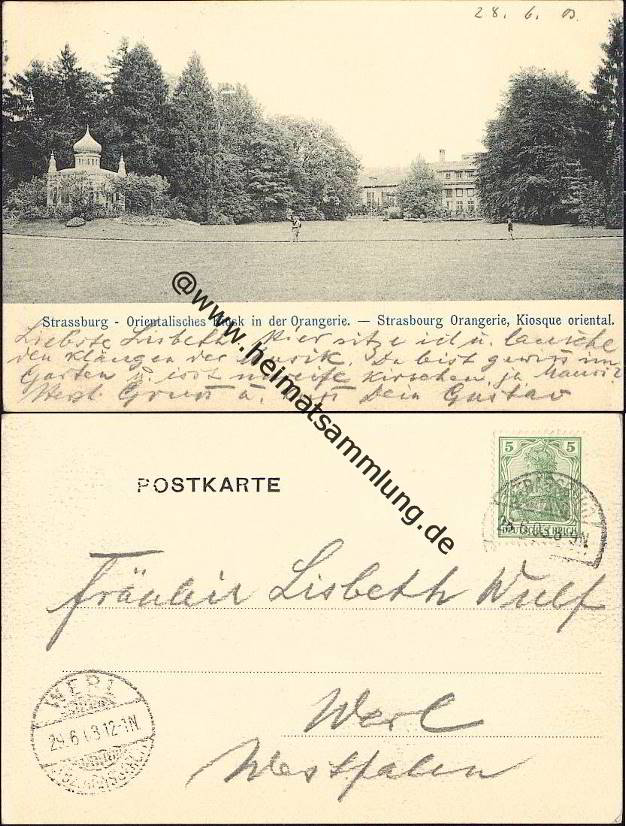 28. 6. 03.
Strassburg - Orientalisches Kiosk in der Orangerie. — Strasbourg Orangerie, Kiosque oriental.
Liebste Lisbeth. Hier sitze ich u. lausche
den Klängen der Musik. Du bist gewiss im
Garten u. isst unreife Kirschen, ja
Herzl. Gruss u. Dein Gustav
@www.heimatsammlung.de
POSTKARTE
5 5
DEUTSCHES REICH
28.6.03. 8-9N
Fräulein Lisbeth Wulf
WERL
29.6.03 12-1N
Werl
Westfalen